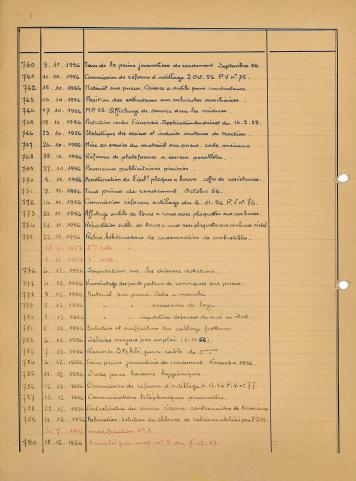 760 9.10.1956 Taux de la prime journalière de rendement Septembre 56
761 11.10.1956 Commission de réforme d'outillage 2 Oct. 56 P.V. n° 75.
762 15.10.1956 Matériel sur pneus. Caisses à outils pour conducteurs.
763 16.10.1956 Position des extincteurs sur véhicules auxiliaires.
764 17.10.1956 MP 55. Affichage de service dans les voitures
765 18.10.1956 Protection contre l'incendie. Application du décret du
766 23.10.1956 Statistique des essieux et induits moteurs de traction.
767 26.10.1956 Mise en service du matériel sur pneus. code
768 25.10.1956 Réforme de plateformes à essieux parallèles.
769 27.10.1956 Panneaux publicitaires périmés.
770 5.11.1956 Amélioration de l'isolt plaques à bornes coffre de résistances.
771 9.11.1956 Taux primes de rendement Octobre 56.
772 14.11.1956 Commission réforme outillage du 6.11.56 P.V n° 76.
773 21.11.1956 Affûtage outils de tours à roues avec plaquettes aux carbures.
774 21.11.1956 outils de tours à roues avec plaquettes aux carbures
775 23.11.1956 Relevé hebdomadaire de consommation de combustibles.
1957 2me note
1957 3e note
776 4.12.1956 sur les diverses
777 4.12.1956 Numérotage des ponts porteurs de remorques sur pneus.
778 5.12.1956 Matériel sur pneus. Cales à manche
779 5.12.1956 " " " accessoires de lavage
780 5.12.1956 " " " imputation dépenses de mise en état.
781 5.12.1956 Entretien et vérification du câblage frotteurs.
782 6.12.1956 Salaires moyens par emploi
783 7.12.1956 Raccords Stähli pour câble de
784 8.12.1956 Taux primes journalières de rendement Novembre 1956
785 11.12.1956 Sucre pour boissons hygiéniques.
786 12.12.1956 Commission de réforme d'outillage 4.12.56 P.V. n° 77.
787 13.12.1956 Communications téléphoniques personnelles.
788 12.1956 Centralisation du service
789 12.1956 Fabrication
7. 1957 modification n° 1
790 18.12.1956 Annulé par mod. n° 9 du 7.12.67